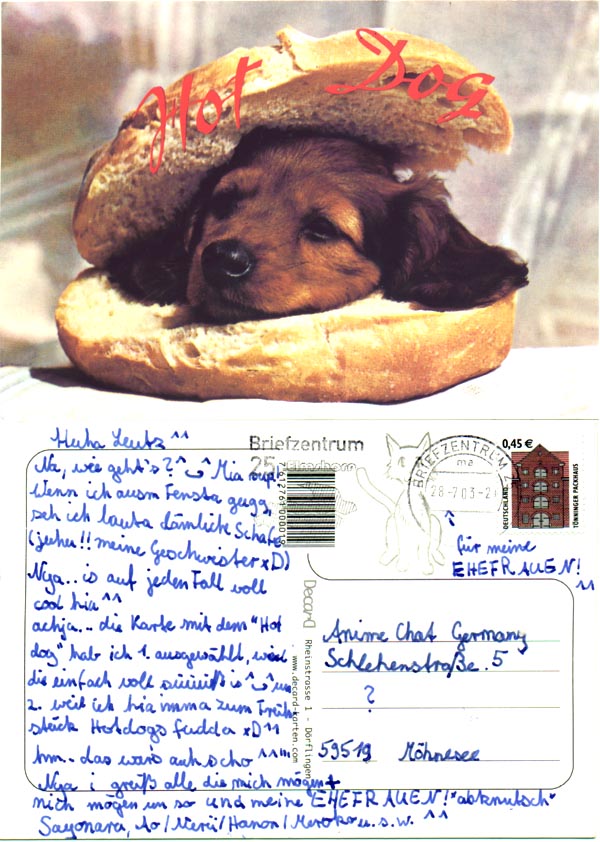 Hot Dog
Huhu Leutz ^^
Na, wie geht's? ^_^ Mia supi!
Wenn ich ausm Fensta gugg,
seh ich lauta dämliche Schafe
(juhu!! meine Geschwister xD)
Nya.. is auf jeden Fall voll
cool hia ^^
achja... die Karte mit dem "Hot
dog" hab ich 1. ausgewählt, weil
die einfach voll süüüß is ^_^ un
2. weil ich hia imma zum Früh-
stück Hotdogs fudda xD^^
hm.. das wars auch scho ^^"
Nya i grüß alle die mich mögen +
nich mögen un so und meine EHEFRAUEN! *abknutsch*
Sayonara, Ao/Meru/Hanon/Meroko u.s.w. ^^
Decard Rheinstrasse 1 - Dörflingen
www.decard-karten.com
612761 000019
Briefzentrum
25
BRIEFZENTRUM
ma
28-7.03-2
0,45 €
DEUTSCHLAND
TÖNNINGER PACKHAUS
für meine
EHEFRAUEN!
^^
Anime Chat Germany
Schlehenstraße 5
?
59519 Möhnesee